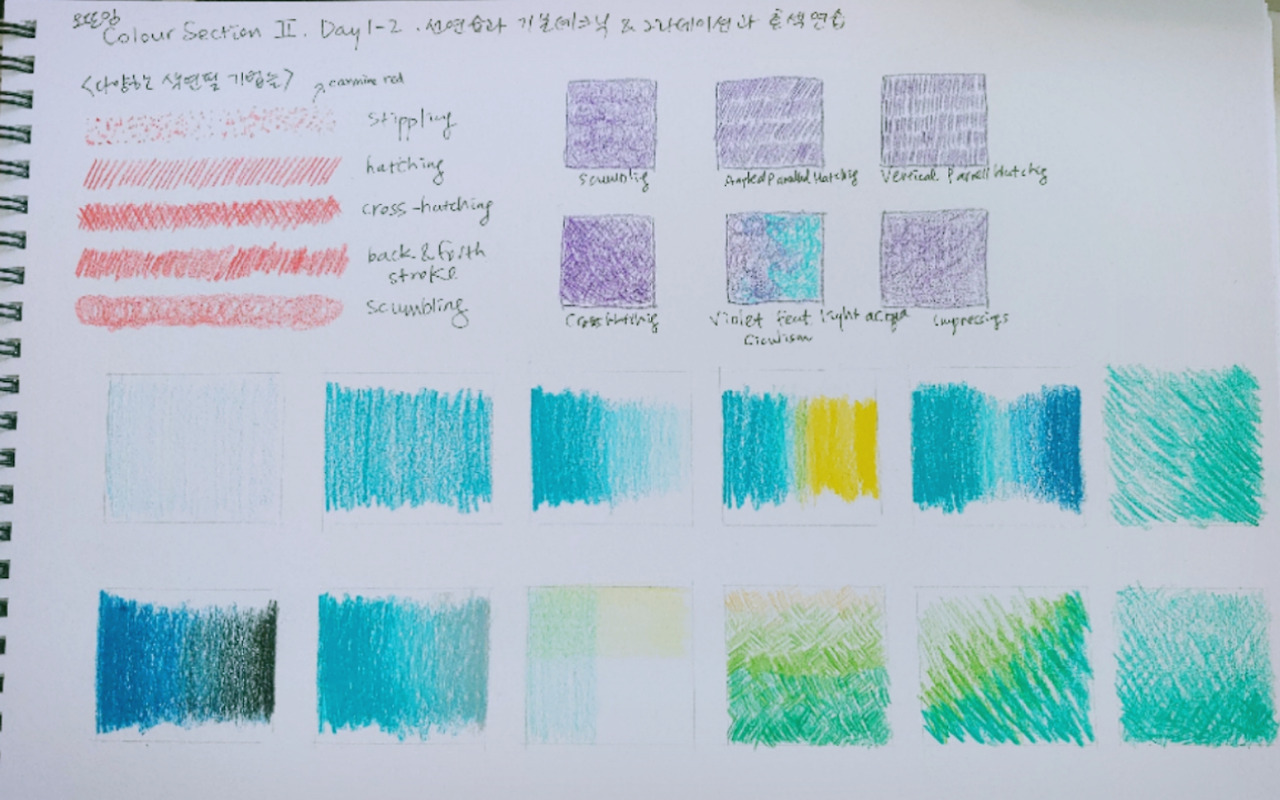 오또잉
Colour Section II. Day1-2. 선연습과 기본테크닉 & 그라데이션과 혼색연습
<다양한 색연필 기법들>
carmine red
stippling
hatching
cross-hatching
back & forth
stroke
scumbling
Scumblig
Angled Parallel Hatchig
Vertical Parrell Hatchig
Cross Hatchig
Violet feat light acqya
Ciculism
Impressigs